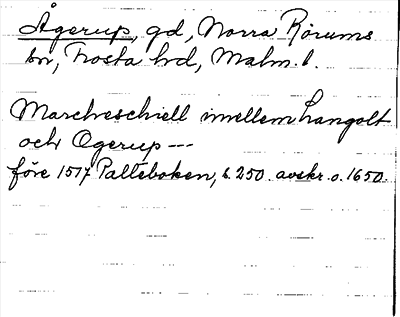 Ågerup, gd, Norra Rörums
sn, Frosta hd, Malm. l.
Marchreschiell imellem Langolt
och Ogerup ---
före 1517 Palteboken, s. 250. avskr. o. 1650.